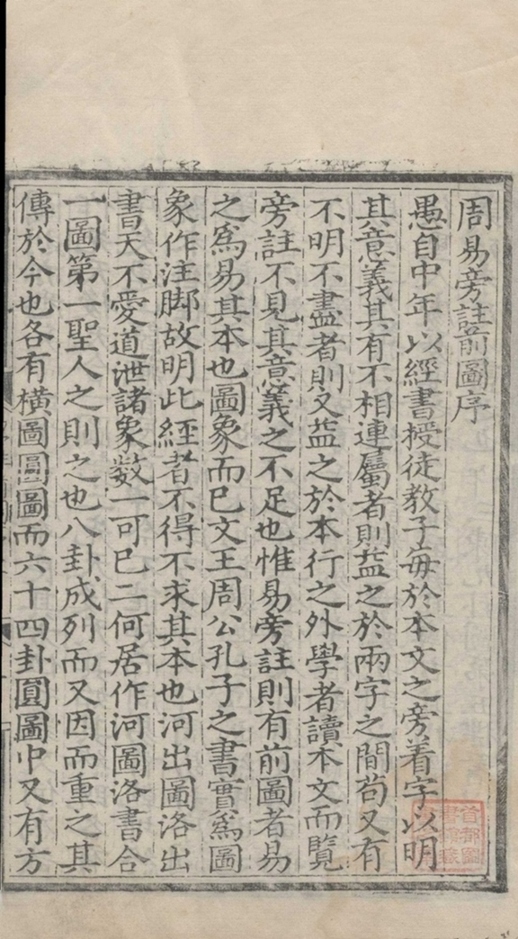 周易旁註前圖序
愚自中年以經書授徒教子每於本文之旁着字以明
其意義其有不相連屬者則益之於兩字之間苟又有
不明不盡者則又益之於本行之外學者讀本文而覽
旁註不見其意義之不足也惟易旁註則有前圖者易
之爲易其本也圖象而已文王周公孔子之書實爲圖
象作注脚故明此經者不得不求其本也河出圖洛出
書天不愛道泄諸象数一可巳二何居作河圖洛書合
一圖第一聖人之則之也八卦成列而又因而重之其
傳於今也各有橫圖圓圖而六十四卦圓圖中又有方
首都圖
書館藏